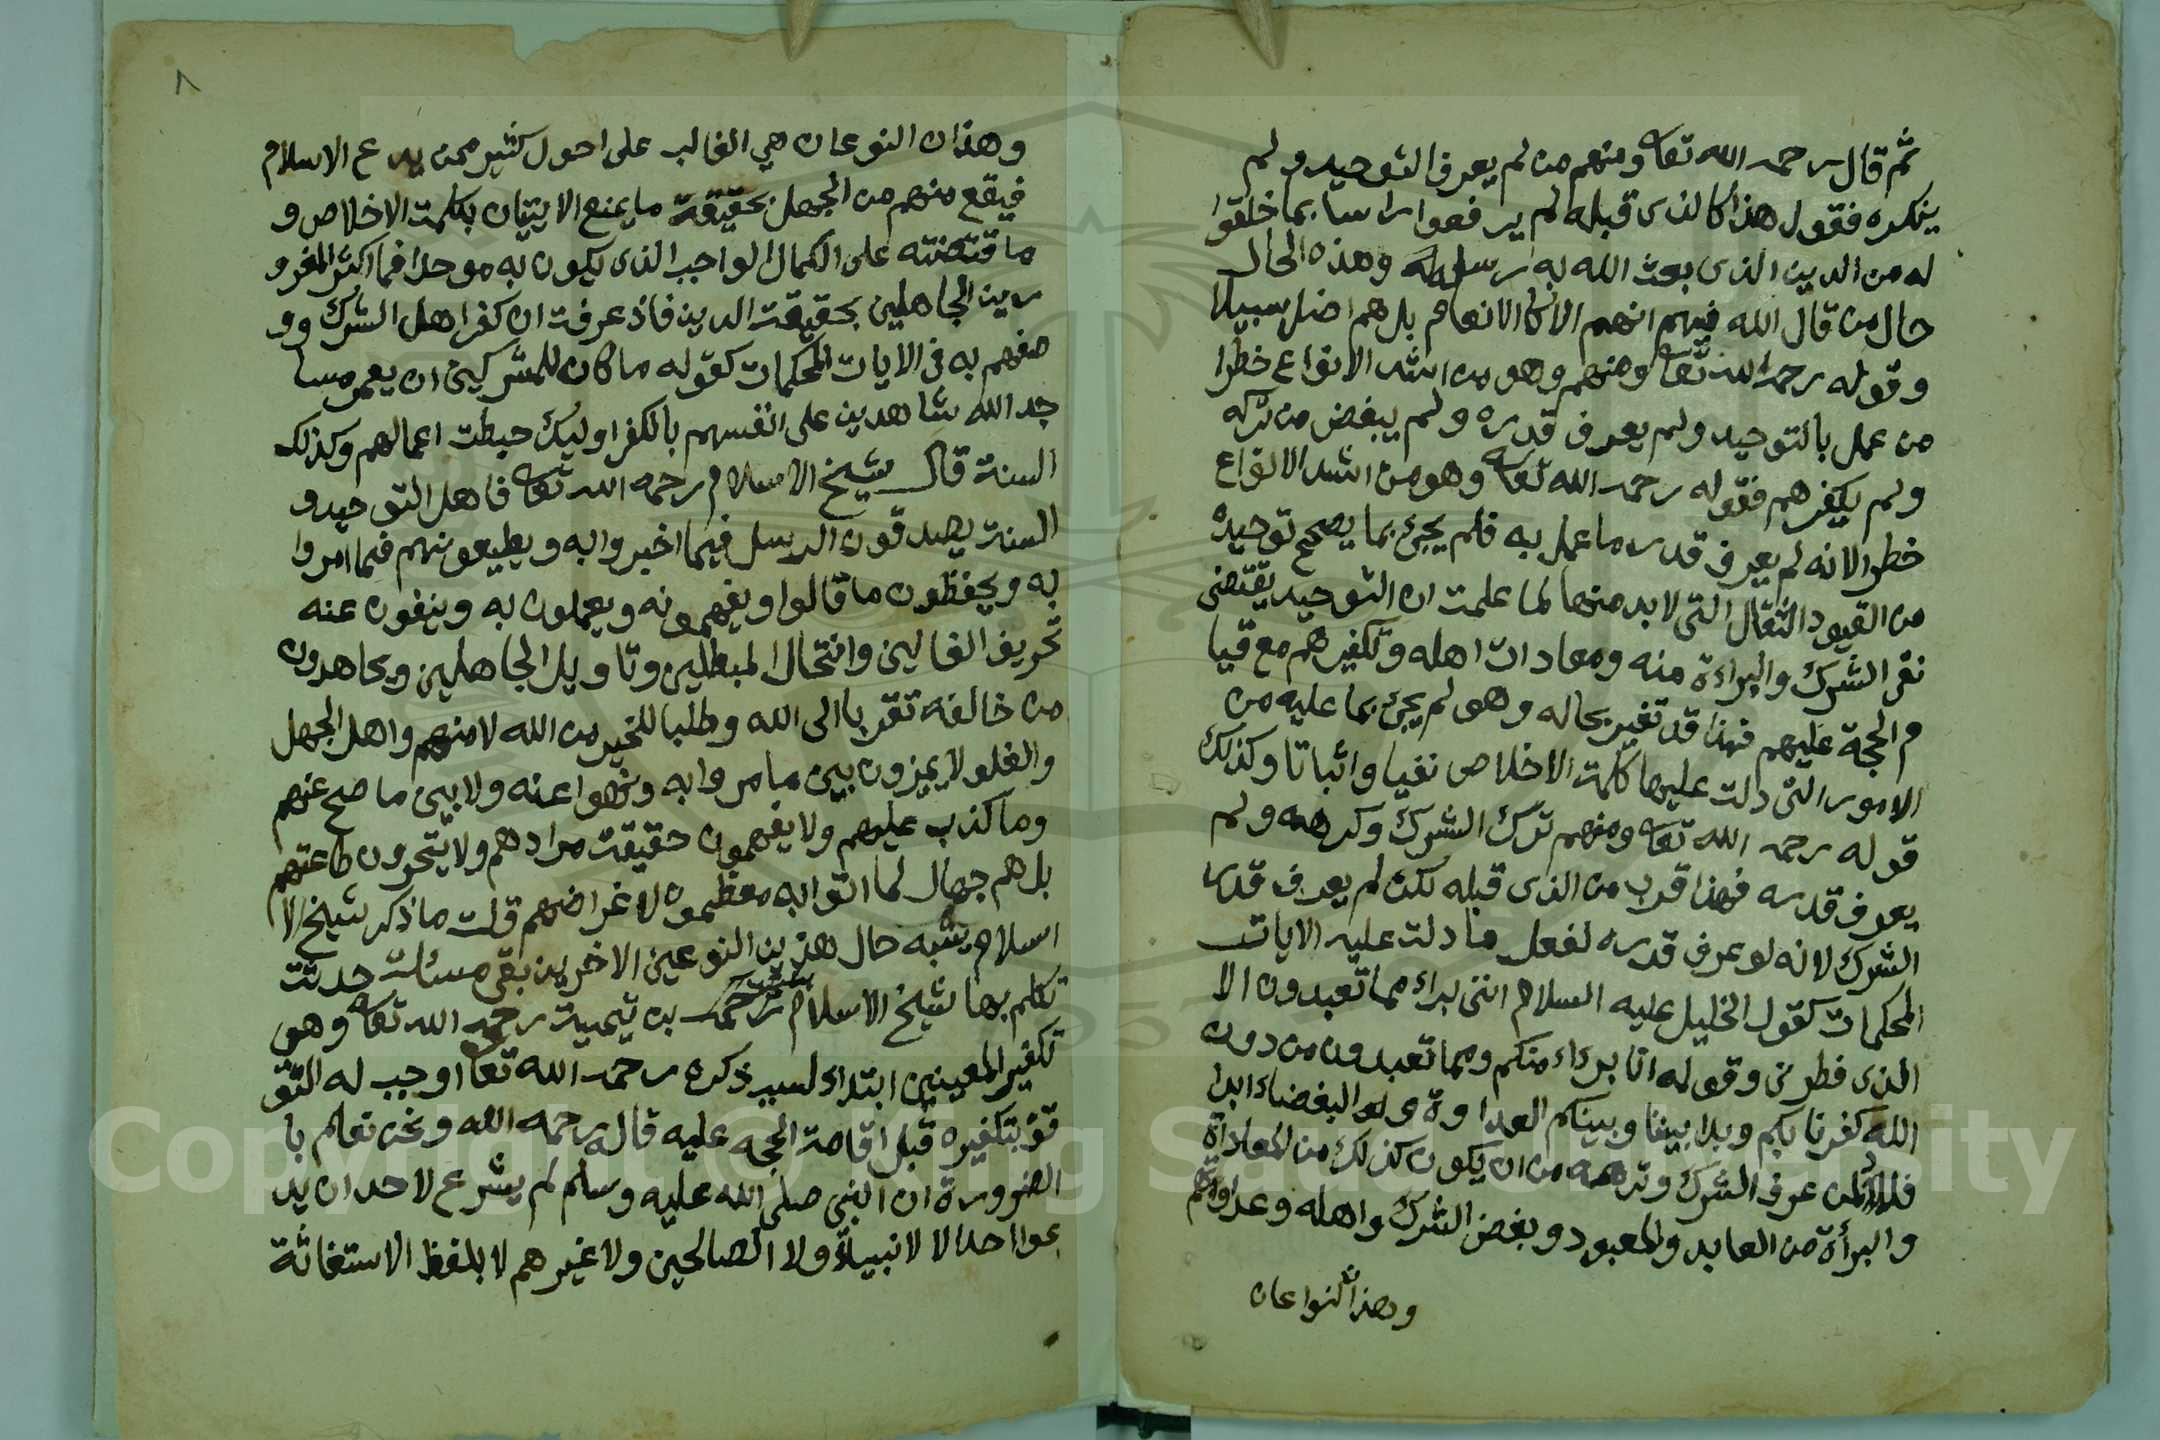 ثم قال رحمه الله تعا ومنهم من لم يعرف التوحيد ولم
ينكره فقول هذا كالذى قبله لم يرفعوا راسا بما خلقوا
له من الدين الذى بعث الله به رسله وهذه الحال
حال من قال الله فيهم انهم الا كالانعام بل هم اضل سبيلا
وقوله رحمه الله تعا ومنهم وهو من اشد الانواع خطرا
من عمل بالتوحيد ولم يعرف قدره ولم يبغض من تركه
ولم يكفرهم فقوله رحمه الله تعا وهو من اشد الانواع
خطرا لانه لم يعرف قدر ما عمل به فلم يجئ بما يصحح توحيده
من القيود الثقال التى لا بد منها لما علمت ان التوحيد يقتضى
نفى الشرك والبراءة منه ومعادات اهله وتكفيرهم مع قيا
م الحجة عليهم فهذا قد تغير بحاله وهو لم يجئ بما عليه من
الامور التى دلت عليها كلمة الاخلاص نفيا واثباتا وكذلك
قوله رحمه الله تعا ومنهم ترك الشرك وكرهه ولم
يعرف قدره فهذا قرب من الذى قبله لكن لم يعرف قدر
الشرك لانه لو عرف قدره لفعل ما دلت عليه الايات
المحكمات كقول الخليل عليه السلام اننى براء مما تعبدون الا
الذى فطرنى وقوله انا برءاء منكم ومما تعبدون من دون
الله كفرنا بكم وبدا بيننا وبينكم العداوة والبغضاء ابدا
عرف الشرك وتركه من ان يكون كذلك من المعاداة
والبرأة من العابد والمعبود وبغض الشرك واهله وعداوتهم
وهذا النواعان
٨
وهذان النوعان هي الغالب على احول كثير ممن يدع الاسلام
فيقع منهم من الجهل بحقيقة ما يمنع الاتيان بكلمة الاخلاص و
ما قتضته على الكمال الواجب الذى يكون به موحدا فما اكثر المغرو
رين الجاهلين بحقيقت الدين فاذ عرفت ان كفر اهل الشرك وو
صفهم به فى الايات المحكمات كقوله ما كان للمشركين ان يعمرو مسا
جد الله شاهدين على انفسهم بالكفر اوليك حبطت اعمالهم وكذلك
السنة قال شيخ الاسلام رحمه الله تعا فاهل التوحيد و
السنة يصدقون الرسل فيما اخبروا به ويطيعونهم فيما امروا
به ويحفظون ما قالوا ويفهمونه ويعملون به وينفون عنه
تحريف الغالين وانتحال المبطلين وتاويل الجاهلين ويجاهدون
من خالفه تقربا الى الله وطلبا للخير من الله لا منهم واهل الجهل
والغلو لا يميزون بين ما مروا به ونهوا عنه ولا بين ما صح عنهم
وما كذب عليهم ولا يفهمون حقيقة مرادهم ولا يتحرون طاعتهم
بل هم جهال لما اتوا به معظمون لاغراضهم قلت ما ذكر شيخ الا
اسلام يشبه حال هذين النوعين الاخرين بقى مسئلت حدثت
تكلم بها شيخ الاسلام بن تيمية رحمه الله تعا وهو
تكفير المعينين ابتداء لسبب ذكره رحمه الله تعا اوجب له التو
قف بتكفيره قبل اقامة الحجه عليه قال رحمه الله ونحن نعلم با
الضرورة ان النبى صلى الله عليه وسلم لم يشرع لاحد ان يد
عوا احدا لا لانبياء ولا الصالحين ولا غيرهم لا بلفظ الاستغاثة
Copyright © King Saud University